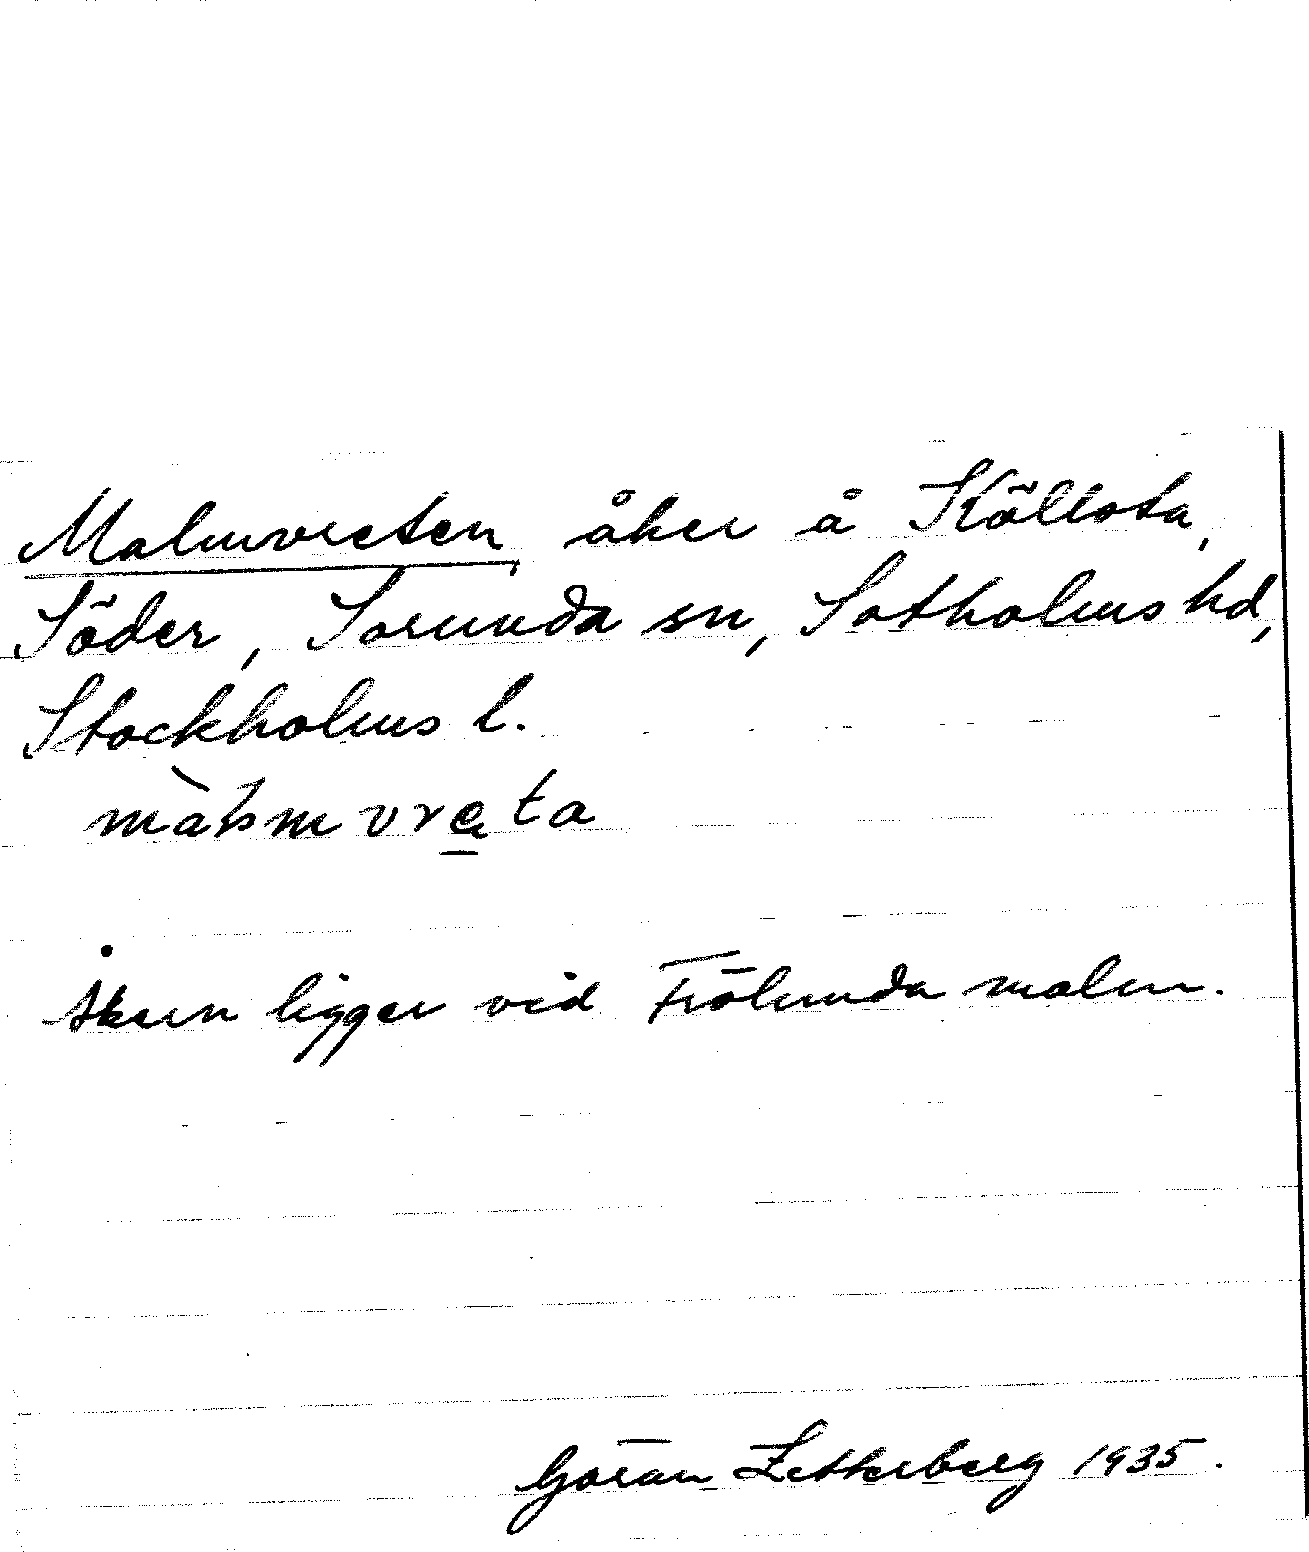 Malmvreten, åker å Källsta,
Söder, Sorunda sn, Sotholms hd,
Stockholms l.
vreta
Åkern ligger vid Frölunda malm.
Göran Zetterberg 1935.